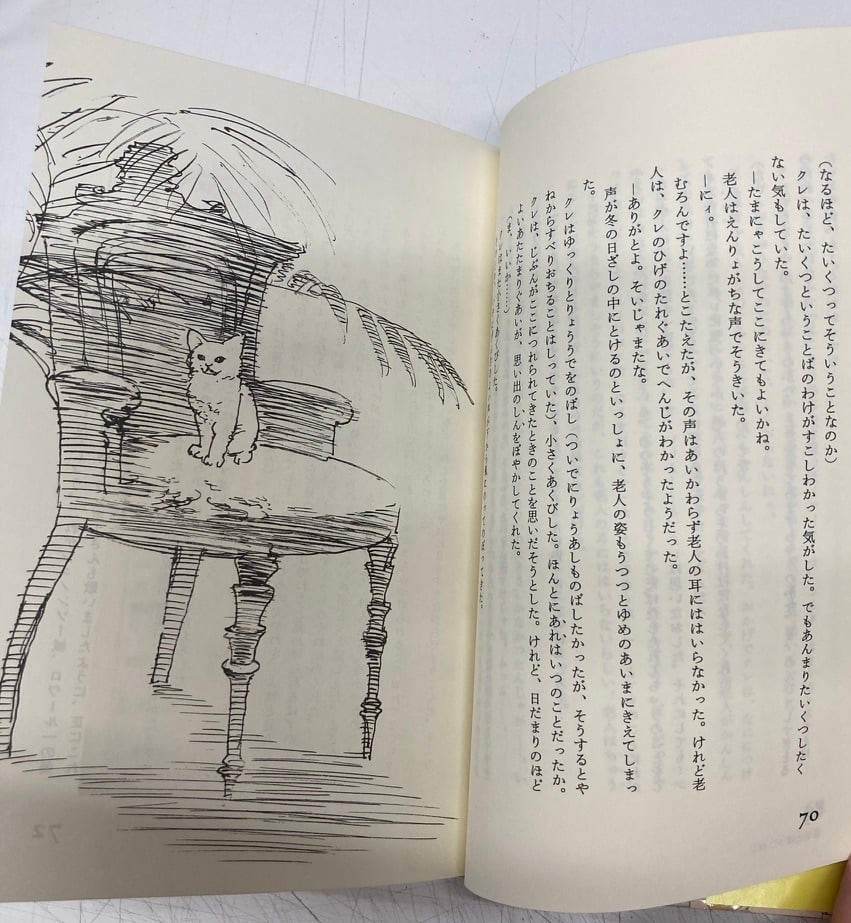 (なるほど、たいくつってそういうことなのか)
クレは、たいくつということばのわけがすこしわかった気がした。でもあんまりたいくつしたく
ない気もしていた。
―たまにゃこうしてここにきてもよいかね。
老人はえんりょがちな声でそうきいた。
―にィ。
むろんですよ……とこたえたが、その声はあいかわらず老人の耳にははいらなかった。けれど老
人は、クレのひげのたれぐあいでへんじがわかったようだった。
―ありがとよ。そいじゃまたな。
声が冬の日ざしの中にとけるのといっしょに、老人の姿もうつつとゆめのあいまにきえてしまっ
た。
クレはゆっくりとりょううでをのばし(ついでにりょうあしものばしたかったが、そうするとや
ねからすべりおちることはしっていた)、小さくあくびした。ほんとにあれはいつのことだったか。
クレは、じぶんがここにつれられてきたときのことを思いだそうとした。けれど、日だまりのほど
よいあたたまりぐあいが、思い出のしんをぼやかしてくれた。
(ま、いいか……)
クレはまた小さくあくびした。
70
72